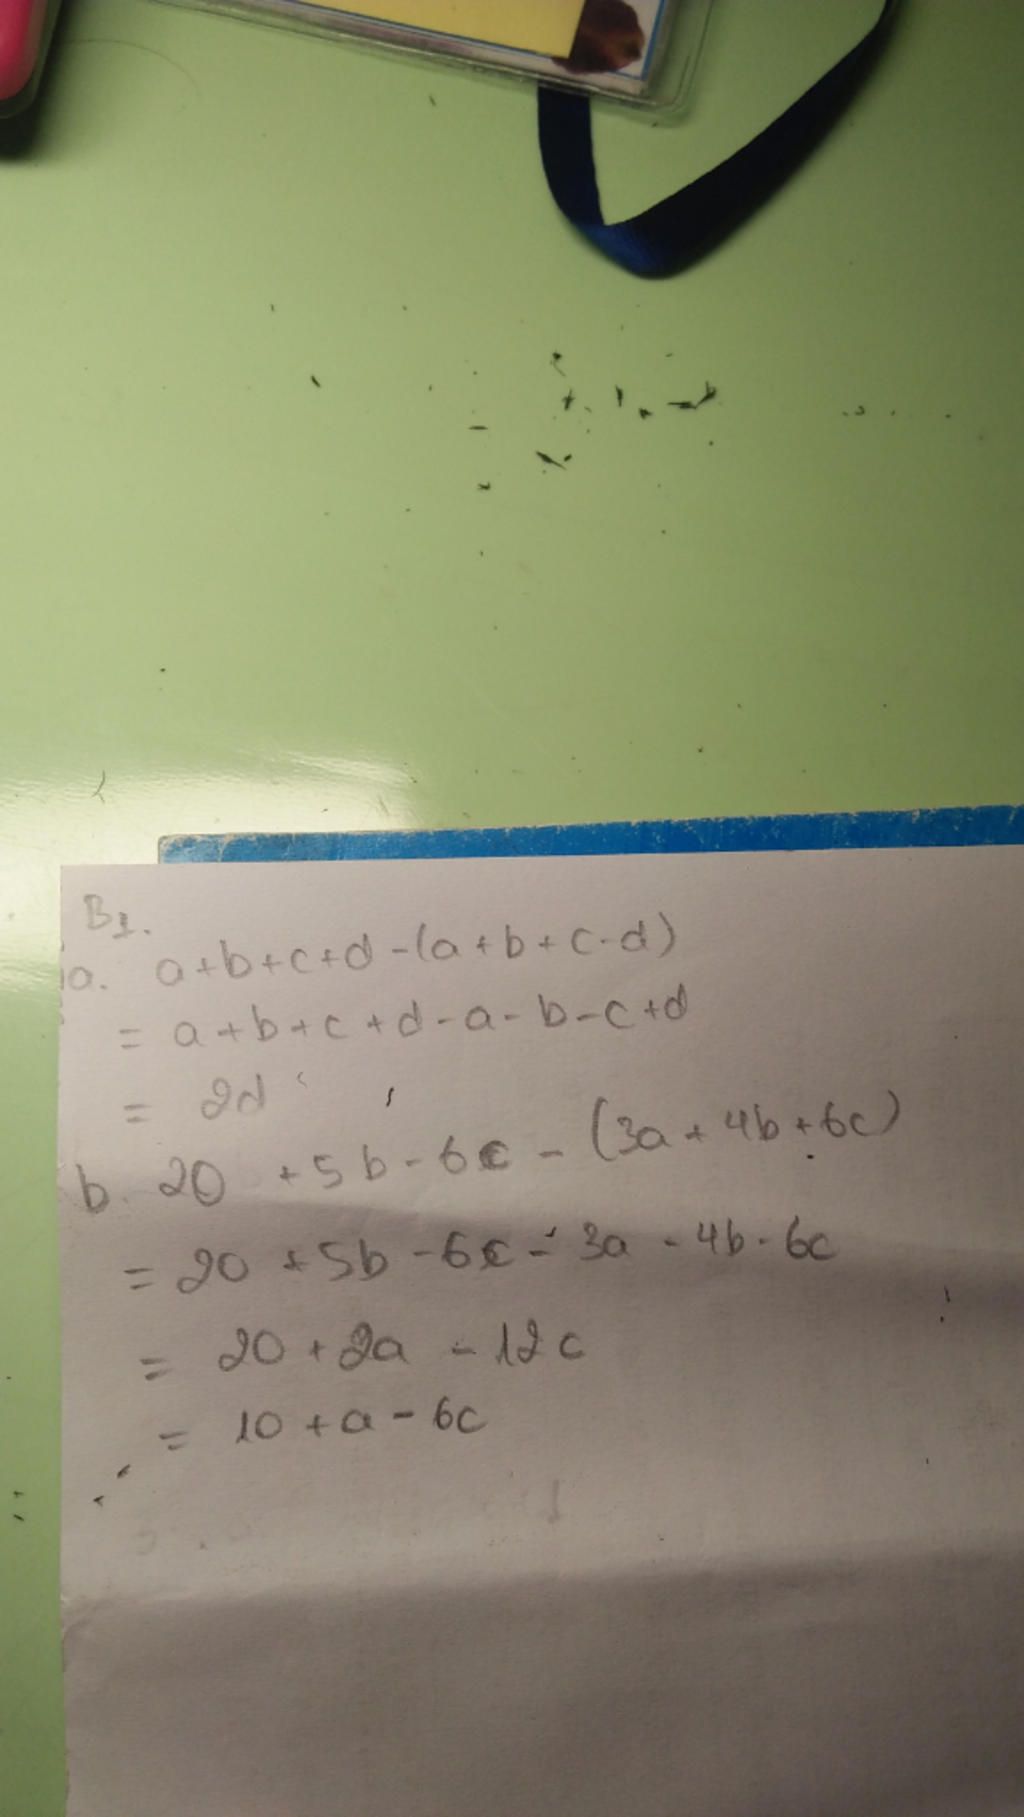 B1.
a. a+b+c+d-(a+b+c-d)
= a+b+c+d-a-b-c+d
= 2d
b. 20 +5b-6c - (3a+4b+6c)
= 20 +5b -6c - 3a - 4b - 6c
= 20 + 2a - 12c
= 10 + a - 6c